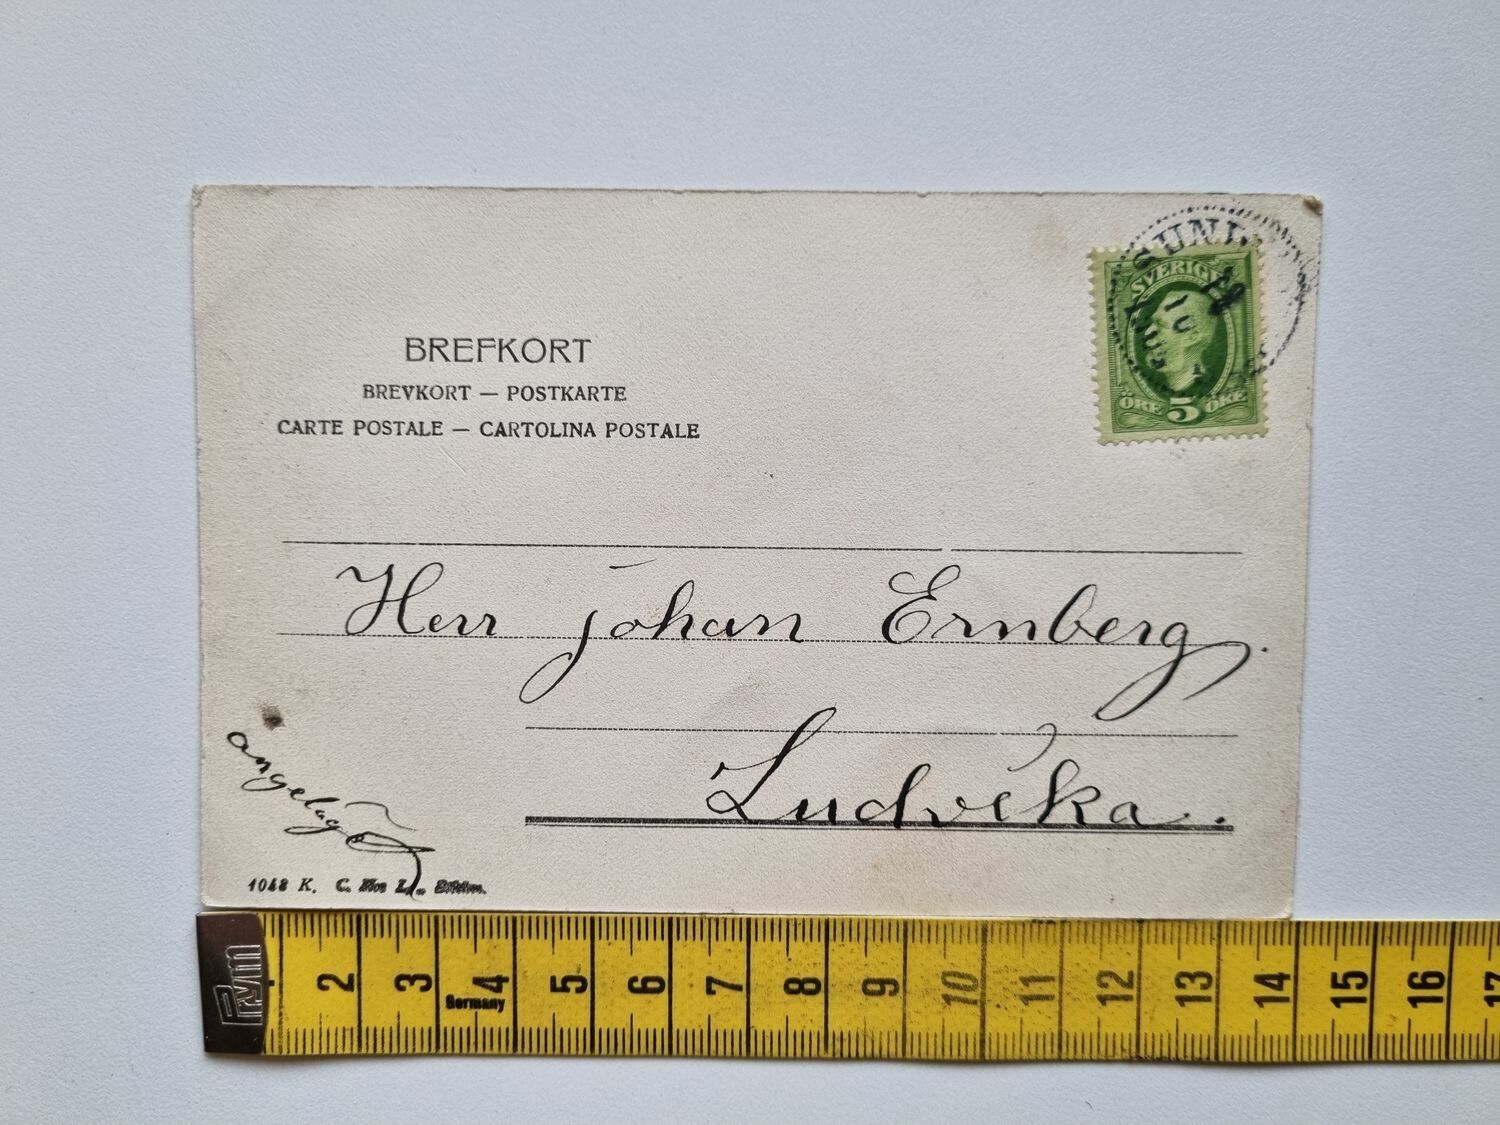 BREFKORT
BREVKORT — POSTKARTE
CARTE POSTALE — CARTOLINA POSTALE
SVERIGE
ÖRE 5 ÖRE
Herr Johan Ernberg.
Ludvika.
1048 K. C.
Prym
2 3 4 5 6 7 8 9 10 11 12 13 14 15 16 17
Germany